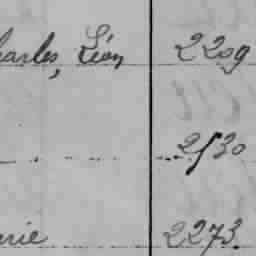 harles, Léon 2209
2530
arie 2273